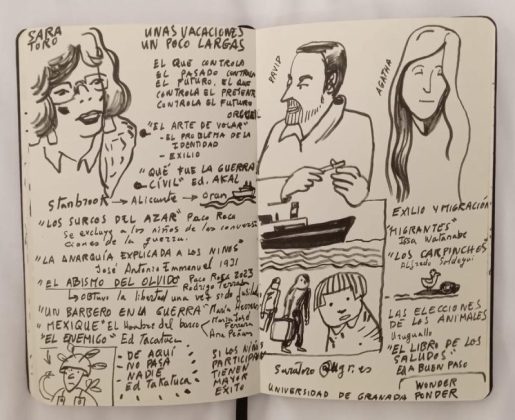 SARA
TORO
UNAS VACACIONES
UN POCO LARGAS
EL QUE CONTROLA
EL PASADO CONTROLA
EL FUTURO. EL QUE
CONTROLA EL PRESENTE
CONTROLA EL FUTURO
ORWELL
"EL ARTE DE VOLAR"
- EL PROBLEMA DE LA
IDENTIDAD
- EXILIO
"QUÉ FUE LA GUERRA
CIVIL" Ed. AKAL
Stanbrook → Alicante → Oran
"LOS SURCOS DEL AZAR" Paco Roca
Se excluye a los niños de las conversa
ciones de la guerra.
"LA ANARQUÍA EXPLICADA A LOS NIÑOS"
José Antonio Emmanuel 1931
"EL ABISMO DEL OLVIDO" Paco Roca 2023
Rodrigo Terrasa
la libertad una vez
"UN BARBERO EN LA GUERRA" María Herreros
"MEXIQUE" El Nombre del barco María José
Ferrada
Ana Penyas
"EL ENEMIGO" Ed Takatuka
- DE AQUÍ
NO PASA
NADIE
Ed Takatuka
SI LOS NIÑOS
PARTICIPAN
TIENEN
MAYOR
EXITO
DAVID
AGATHA
EXILIO Y MIGRACIÓN
"MIGRANTES"
Issa Watanabe
"LOS CARPINCHOS"
Alfredo Soderguit
LAS ELECCIONES
DE LOS ANIMALES
"EL LIBRO DE LOS
SALUDOS"
A BUEN PASO
WONDER
PONDER
saratoro@ugr.es
UNIVERSIDAD DE GRANADA